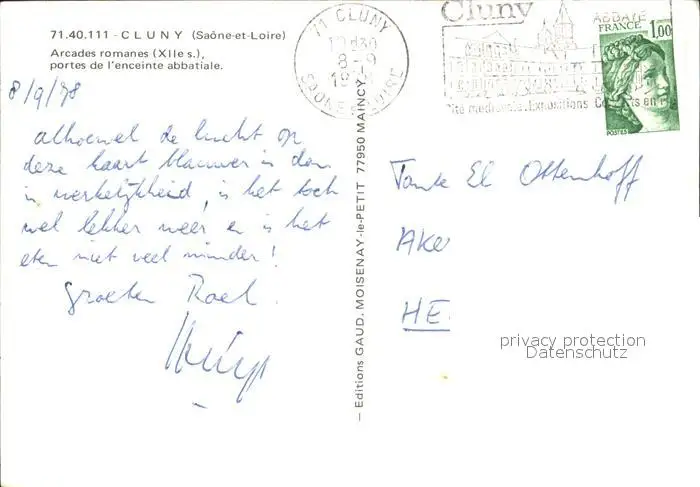 71.40.111 - CLUNY (Saône-et-Loire)
Arcades romanes (XIIe s.),
portes de l'enceinte abbatiale.
8/9/78
alhoewel de lucht op
deze kaart blauwer is dan
in werkelijkheid, is het toch
wel lekker weer en is het
eten niet veel minder!
Groeten Roel.
— Editions GAUD. MOISENAY-le-PETIT 77950 MAINCY —
71 CLUNY
8-9
SAONE-ET-LOIRE
Cluny
ABBAYE
Cité médiévale. Expositions Concerts en
FRANCE 1,00
POSTES
Tante El Ottenhoff
AKU
HE.
privacy protection
Datenschutz